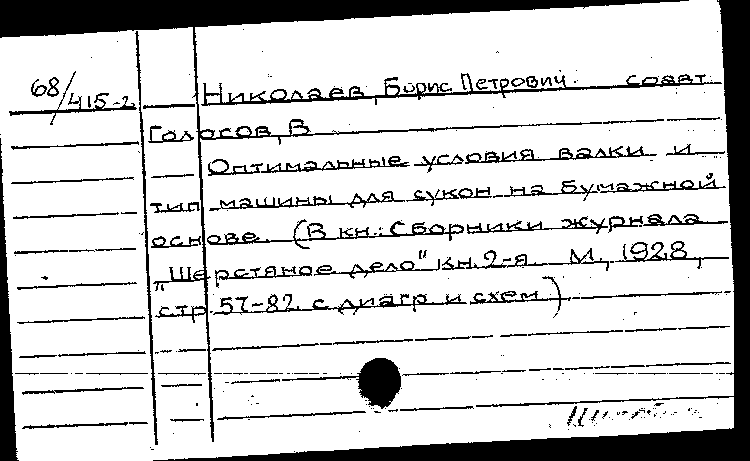 68/415-2
Николаев, Борис Петрович. соавт
Голосов, В
Оптимальные условия валки и
тип машины для сукон на бумажной
основе. (В кн.: Сборники журнала
„Шерстяное дело" кн. 2-я М., 1928,
стр 57-82 с диагр и схем)